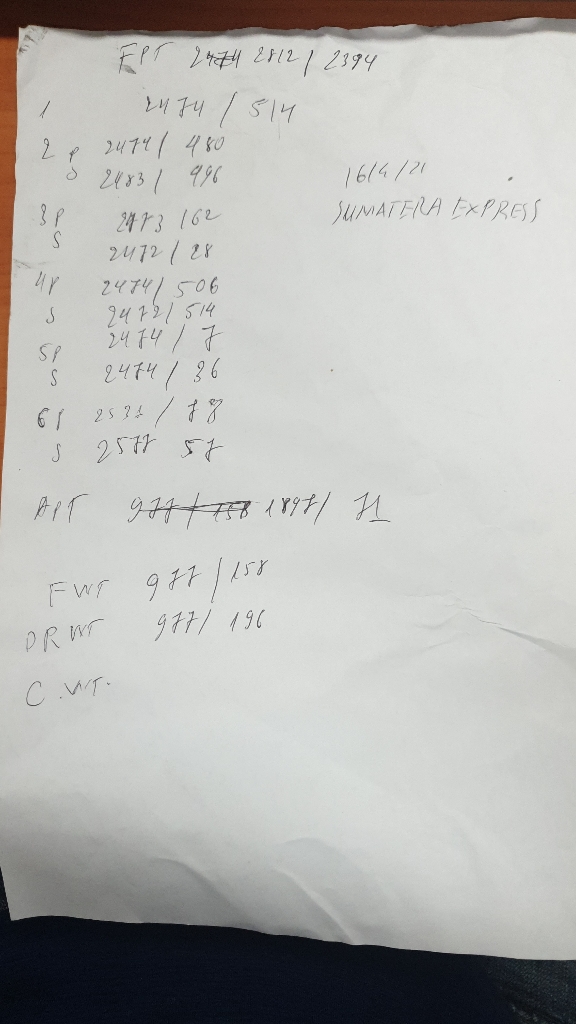 FPT 2474 2812 / 2394
1 2474 / 514
2 P 2474 / 480
S 2483 / 996
16/4/21
SUMATERA EXPRESS
3P 2473 / 62
S 2472 / 28
4P 2474 / 506
S 2472 / 514
5P 2474 / 7
S 2474 / 36
6P 2531 / 78
S 2577 57
APT 977 / 158 1897 / 71
FWT 977 / 158
DRWT 977 / 196
C.WT.